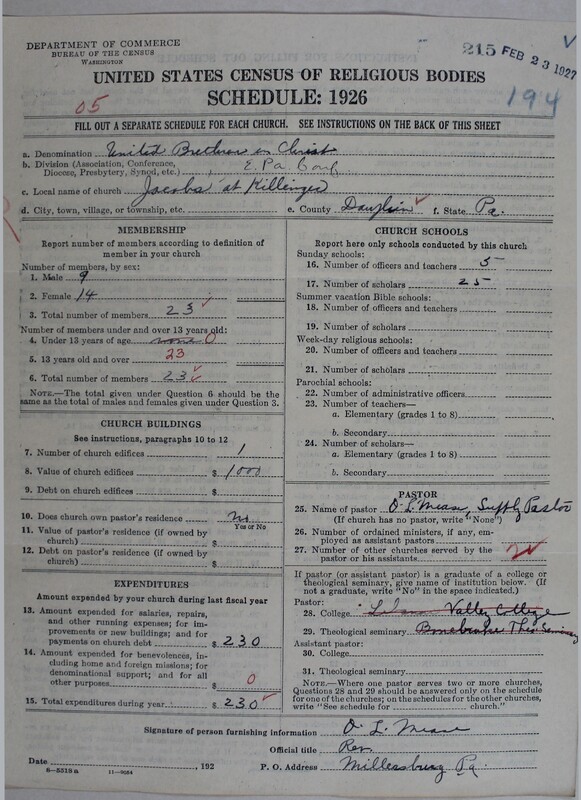 DEPARTMENT OF COMMERCE
BUREAU OF THE CENSUS
WASHINGTON
215 FEB 23 1927
UNITED STATES CENSUS OF RELIGIOUS BODIES
SCHEDULE: 1926
05
194
FILL OUT A SEPARATE SCHEDULE FOR EACH CHURCH. SEE INSTRUCTIONS ON THE BACK OF THIS SHEET
a. Denomination United Brethren in Christ
b. Division (Association, Conference,
Diocese, Presbytery, Synod, etc.) E. Pa. Conf
c. Local name of church Jacobs at Killinger
d. City, town, village, or township, etc. e. County Dauphin f. State Pa.
MEMBERSHIP
Report number of members according to definition of
member in your church
Number of members, by sex:
1. Male 9
2. Female 14
3. Total number of members 23
Number of members under and over 13 years old:
4. Under 13 years of age none 0
5. 13 years old and over 23
6. Total number of members 23
NOTE.—The total given under Question 6 should be
same as the total of males and females given under Question 3.
CHURCH BUILDINGS
See instructions, paragraphs 10 to 12
7. Number of church edifices 1
8. Value of church edifices $ 1000
9. Debt on church edifices $
10. Does church own pastor's residence No
Yes or No
11. Value of pastor's residence (if owned by
church) $
12. Debt on pastor's residence (if owned by
church) $
EXPENDITURES
Amount expended by your church during last fiscal year
13. Amount expended for salaries, repairs,
and other running expenses; for im-
provements or new buildings; and for
payments on church debt $ 230
14. Amount expended for benevolences, in-
cluding home and foreign missions; for
denominational support; and for all
other purposes $ 0
15. Total expenditures during year $ 230
CHURCH SCHOOLS
Report here only schools conducted by this church
Sunday schools:
16. Number of officers and teachers 5
17. Number of scholars 25
Summer vacation Bible schools:
18. Number of officers and teachers
19. Number of scholars
Week-day religious schools:
20. Number of officers and teachers
21. Number of scholars
Parochial schools:
22. Number of administrative officers
23. Number of teachers—
a. Elementary (grades 1 to 8)
b. Secondary
24. Number of scholars—
a. Elementary (grades 1 to 8)
b. Secondary
PASTOR
25. Name of pastor O. L. Mease, Supply Pastor
(If church has no pastor, write "None")
26. Number of ordained ministers, if any, em-
ployed as assistant pastors
27. Number of other churches served by the
pastor or his assistants
If pastor (or assistant pastor) is a graduate of a college or
theological seminary, give name of institution below. (If
not a graduate, write "No" in the space indicated.)
Pastor:
28. College Valley College
29. Theological seminary Bonebrake Theo Seminary
Assistant pastor:
30. College
31. Theological seminary
NOTE.—Where one pastor serves two or more churches,
Questions 28 and 29 should be answered only on the schedule
for one of the churches; on the schedules for the other churches,
write "See schedule for church."
Signature of person furnishing information O. L. Mease
Official title Rev.
Date , 192 P. O. Address Millersburg Pa.
6—5518a 11—9684